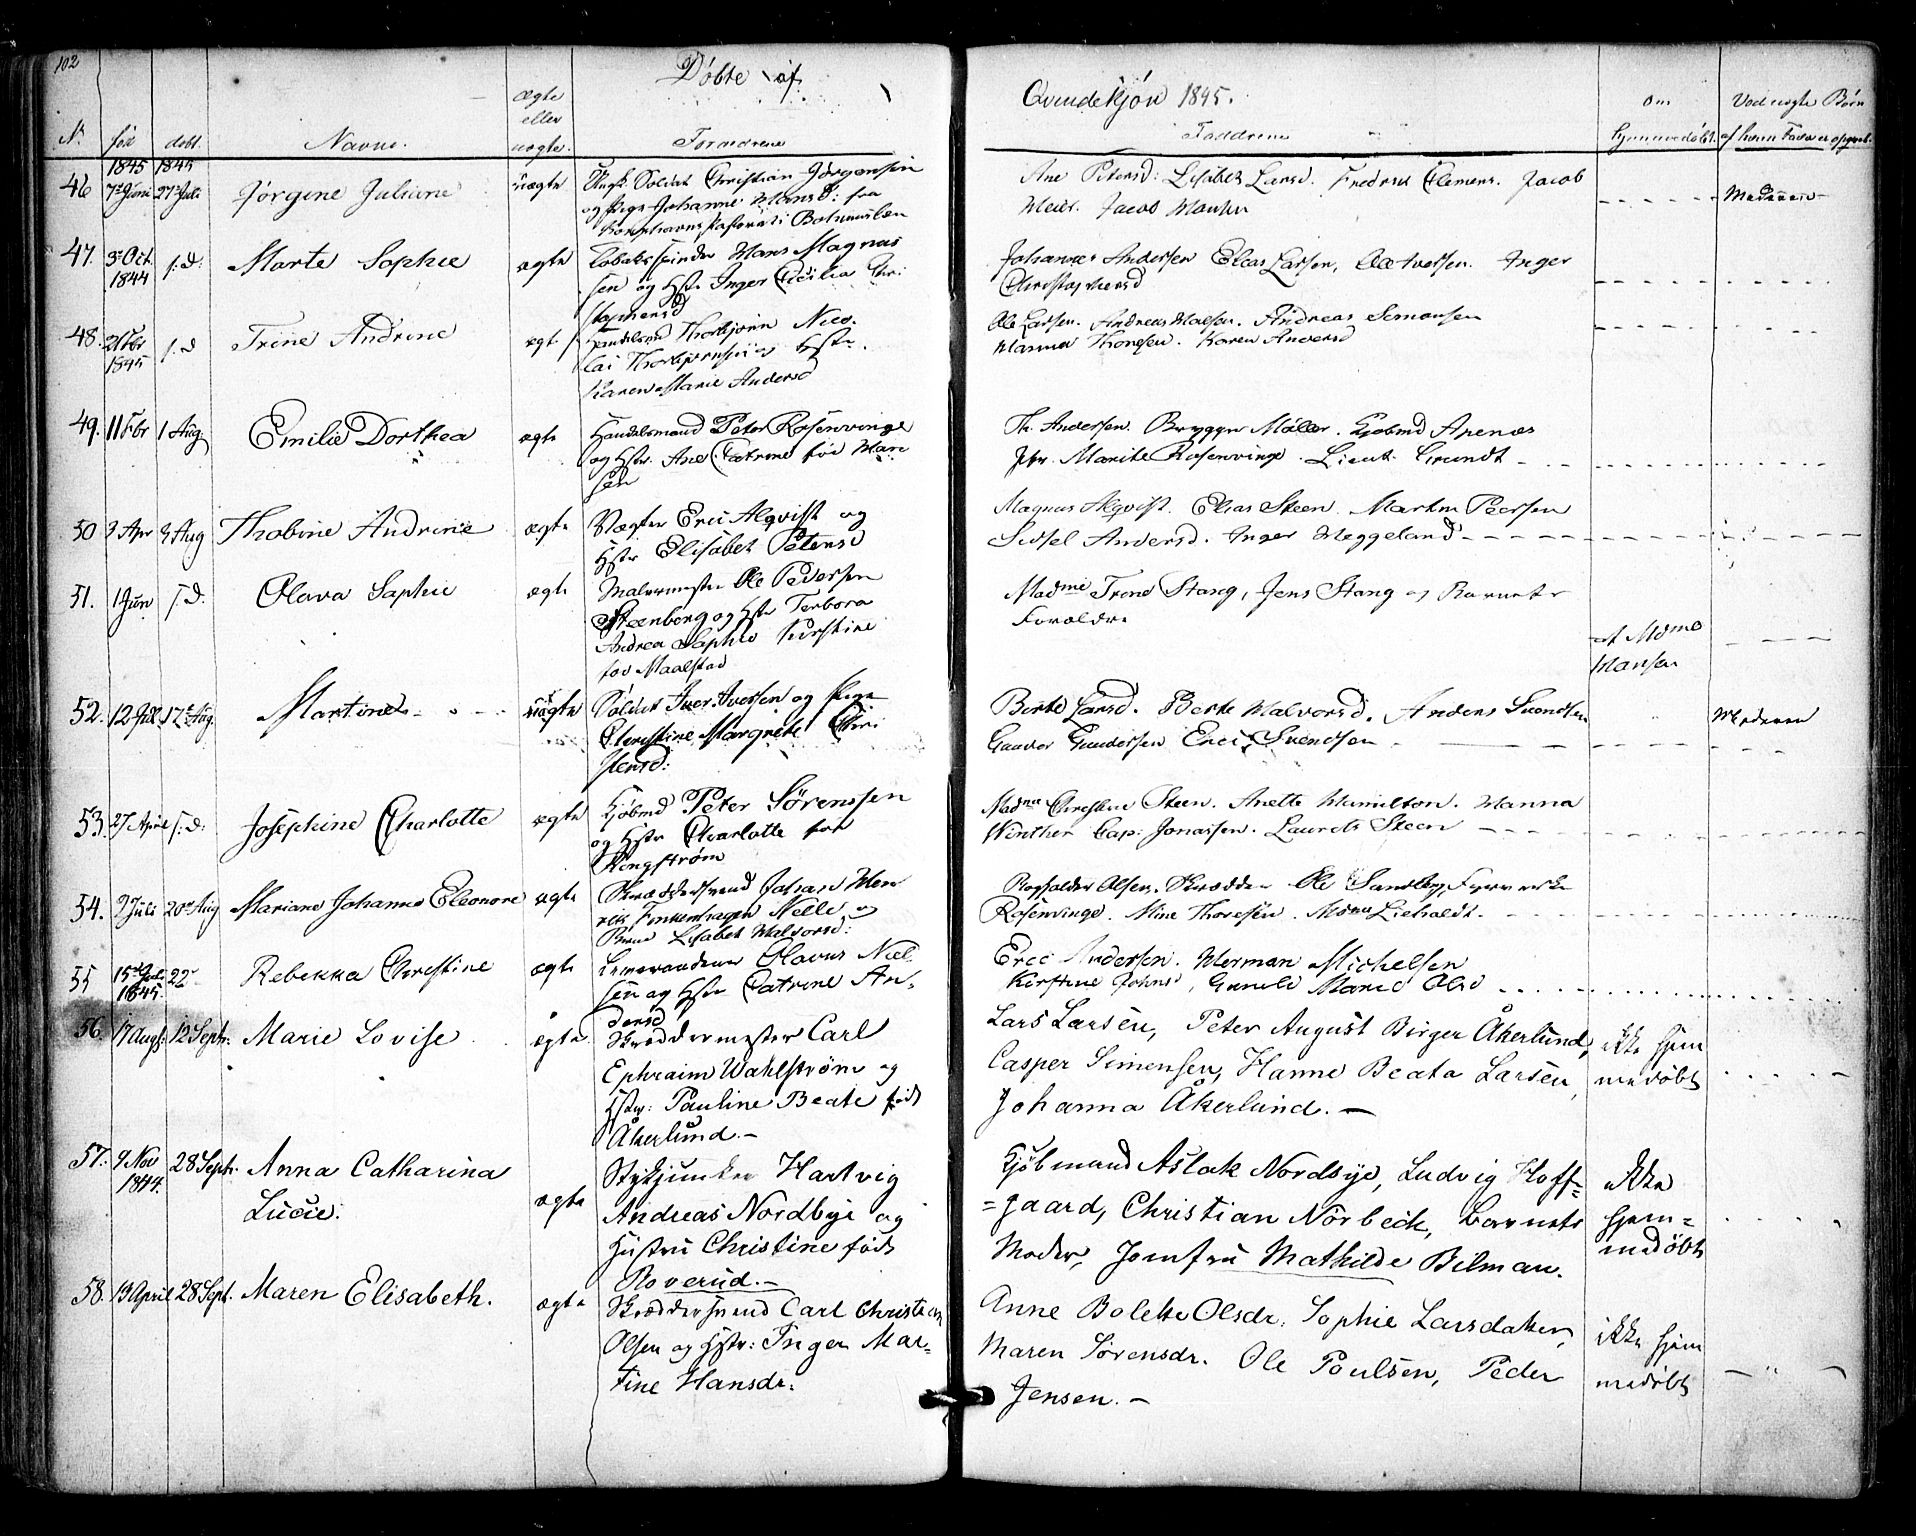 102
Døbte af
Qvindekjøn 1845.
No
før
døbt
Navne
ægte
eller
uægte.
Forældrene
Faddrene
om
hjemmedøbt
Ved uægte Børn
af hvem Fader er opgivet.
1845 1845
46 7de Juni 27de Juli Jørgine Juliane uægte Soldat Christian Jørgensen
og Pige Johanne Hansd: fra
Ane Petersd: Lisabet Larsd. Fredrik Clemens. Jacob
Meier. Jacob
Moderen
47. 3 Oct. 1844 s.d. Marte Sophie ægte Tobaksspinder Hans Magnus
sen og Hstr Inger Cecilia Chri
stophersd
Johannes Andersen Elias Larsen, Ole Iversen. Inger
Christophersd
48. 21 Fbr 1845 s.d Trine Andrine ægt Thorbjørn Nico
lai Thorbjørnsen og Hstr.
Karen Marie Andersd
Ole Larsen. Andreas Halsen. Andreas Simonsen
Hanna Thoresen. Karen Andersd
49. 11 Fbr 1 Aug Emilie Dorthea ægte Handelsmand Peter Rosenvinge
og Hstr. Ane Catrine fød Han
sen
Th. Andersen. Brygger Møller. Kjøbmd Arenas
Jfr. Marite Rosenvinge. Lieut. Grundt
50 3 Apr 3 Aug Thobine Andrine ægte Vægter Eric Alqvist og
Hstr Elisabet Petersd
Magnus Alqvist. Elias Steen. Martin Peersen
Sidsel Andersd. Inger Heggeland
51. 1 Jun s.d. Olava Sophie ægte Malermester Ole Pedersen
Steenborg og Hstr Terbora
Andrea Sophie Kirstine
fød Maalstad
Madme Trine Stang, Jens Stang og Barnets
Forældre
af Mdme
Hansen
52. 12 Juli 17de Aug. Martine uægte Soldat Iver Iversen og Pige
Christine Margrete Chri
stensd:
Berte Larsd. Berte Halvorsd. Anders Svendsen
Gunder Gundersen Eric Svendsen
Moderen
53. 27 April s.d. Josephine Charlotte ægte Kjøbmd Peter Sørenssen
og Hstr Charlotte fød
Kongstrøm
Madme Christine Steen. Anette Hamilton. Hanna
Winther Cap: Jonassen. Laurits Steen
54. 9 Juli 20de Aug Mariane Johanne Eleonore ægte Skræddersvend Johan Hen
rik Finkenhagen Nelle og
Lisabet Halvorsd:
Olsen. Skrædder Ole Sandby,
Rosenvinge. Mine Thoresen. Mdme Liehaldt.
55 15de Juli 1845. 22de Rebekka Christine ægte Olavus Niel
sen og Hstr Catrine An
dersd
Eric Andersen. Herman Mickelsen
Kirstine Johns, Gunild Marie Olsd
56. 17 Augs: 12 Septr. Marie Lovise ægte Skræddermester Carl
Ephraim Wahlstrøm og
Hstr: Pauline Beate født
Åkerlund.—
Lars Larsen, Peter August Birger Åkerlund,
Casper Simensen, Hanne Beata Larsen,
Johanna Åkerlund.—
ikke hjem
medøbt
57. 9 Nov 1844. 28 Septr. Anna Catharina
Lucie.
ægte Stykjunker Hartvig
Andreas Nordbye og
Hustru Christine født
Roverud.—
Kjøbmand Aslak Nordbye, Ludvig Hoff=
=gaard, Christian Nörbeck, Barnets
Moder, Jomfru Mathilde Bilman.
ikke
hjem=
medøbt
58. 13 April 28 Sept. Maren Elisabeth. ægte Skræddersvend Carl Christian
Olsen og Hstr: Inger Mar=
tine Hansdr.
Anne Bolette Olsdr. Sophie Larsdatter,
Maren Sørensdr. Ole Poulsen, Peder
Jensen.—
ikke hjem
medøbt